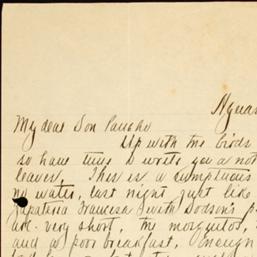 My dear Don Pancho
Up with the birds
so have time to write you a not
leaves. This is a sumptuous
no water, last night just like
Zapateria Francesa (with Dodson's p
are very short, the mosquitos,
and a poor breakfast,